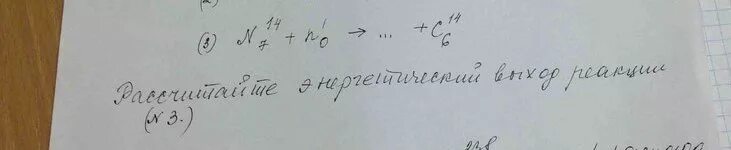 (3) N₇¹⁴ + n₀¹ → ... + C₆¹⁴
Рассчитайте энергетический выход реакции
(N 3.)
238